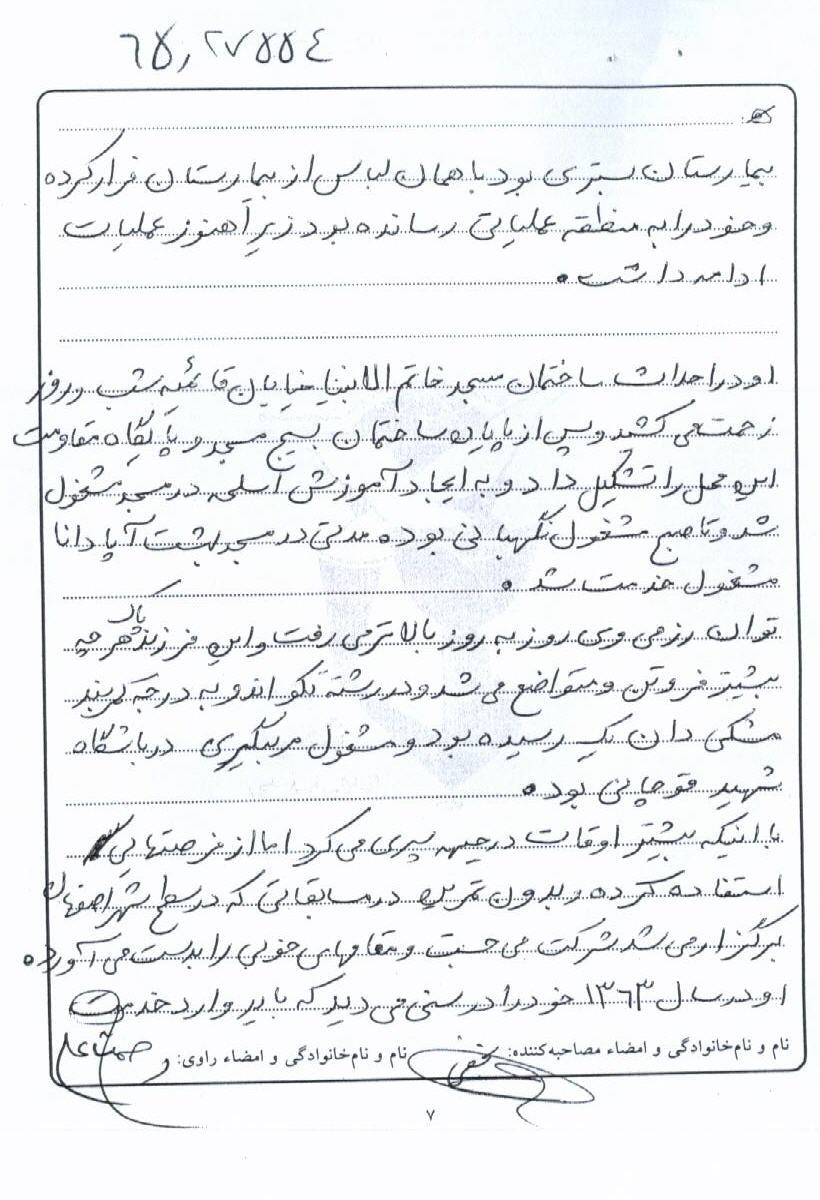 ۶۵,۲۷۵۵۴
بیمارستان بستری بود با همان لباس از بیمارستان فرار کرده
و خود را به منطقه عملیاتی رسانده بود زیرا هنوز عملیات
ادامه داشت.
او در احداث ساختمان مسجد خاتم الانبیا خیابان قائمیه شب و روز
زحمت می کشید و پس از پایان ساختمان بسیج مسجد و پایگاه مقاومت
این محل را تشکیل داد و به ایجاد آموزش اسلحه در مسجد مشغول
شد و تا صبح مشغول نگهبانی بوده مدتی در مسجد بهشت آپادانا
مشغول خدمت شد.
توان رزمی وی روز به روز بالاتر می رفت و این فرزند پاک هر چه
بیشتر فروتن و متواضع می شد و در رشته تکواندو به درجه کمربند
مشکی دان یک رسیده بود و مشغول مربیگری در باشگاه
شهید قوچانی بود.
با اینکه بیشتر اوقات در جبهه سپری می کرد اما از فرصتهایی
استفاده کرده و بدون تمرین در مسابقاتی که در سطح شهر اصفهان
برگزار می شد شرکت می جست و مقامهای خوبی را بدست می آورد.
او در سال ۱۳۶۳ خود را در سنی می دید که باید وارد خدمت
نام و نام‌خانوادگی و امضاء مصاحبه‌کننده: نام و نام‌خانوادگی و امضاء راوی:
۷